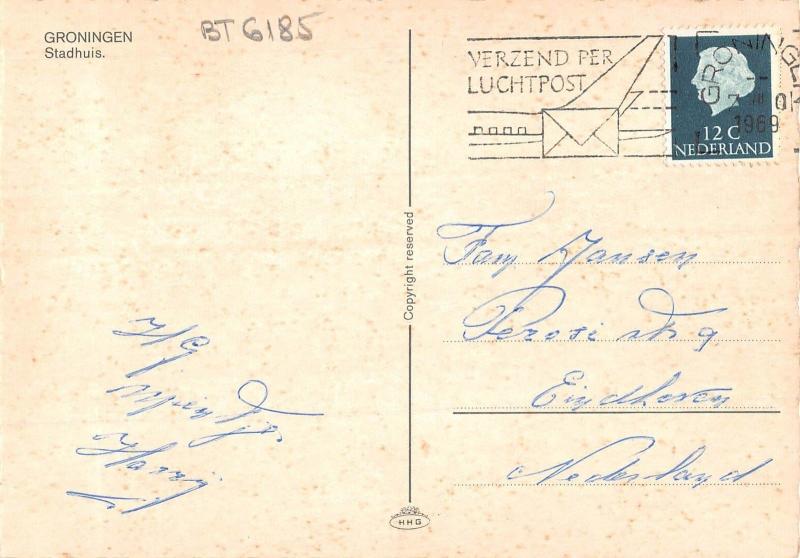 GRONINGEN
Stadhuis.
BT6185
VERZEND PER
LUCHTPOST
GRONINGEN
1969
12 C
NEDERLAND
Copyright reserved
Fam Jansen
Perosi str 9
Eindhoven
Nederland
HG
Harry
HHG